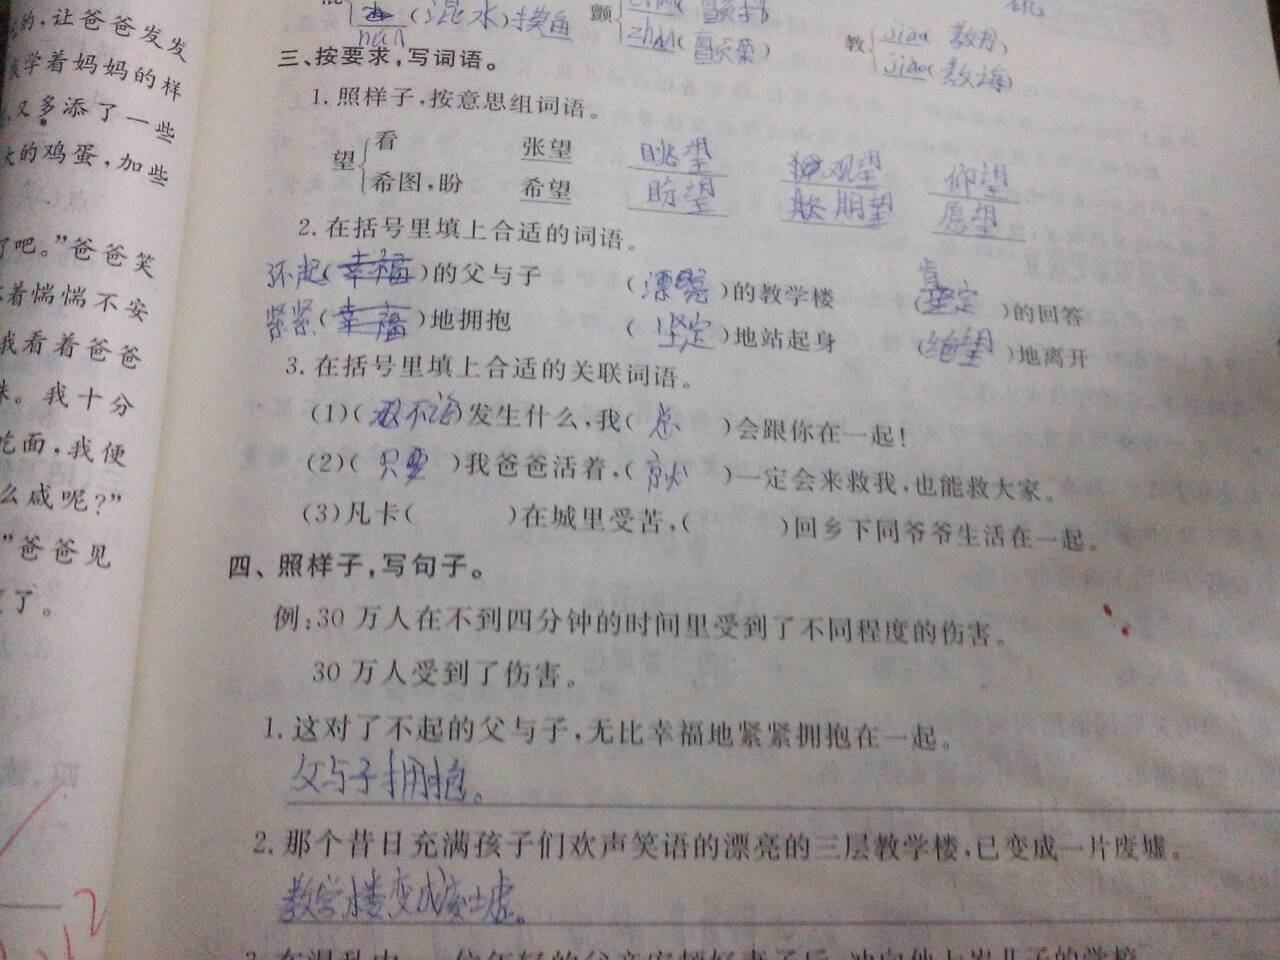 的,让爸爸发发
学着妈妈的样
又多添了一些
大的鸡蛋,加些
了吧。”爸爸笑
着惴惴不安
我看着爸爸
味。我十分
吃面,我便
么咸呢?”
”爸爸见
了。
(混水)摸鱼
颤 zhàn(颤栗)
教 jiāo
jiào(教诲)
三、按要求,写词语。
1. 照样子,按意思组词语。
望 看 张望 眺望 观望 仰望
希图,盼 希望 盼望 期望 愿望
2. 在括号里填上合适的词语。
了不起(幸福)的父与子 (漂亮)的教学楼 (肯定)的回答
紧紧(幸福)地拥抱 (坚定)地站起身 (绝望)地离开
3. 在括号里填上合适的关联词语。
(1)(不论)发生什么,我(总 )会跟你在一起!
(2)( 只要 )我爸爸活着,( 就 )一定会来救我,也能救大家。
(3)凡卡( )在城里受苦,( )回乡下同爷爷生活在一起。
四、照样子,写句子。
例:30 万人在不到四分钟的时间里受到了不同程度的伤害。
30 万人受到了伤害。
1. 这对了不起的父与子,无比幸福地紧紧拥抱在一起。
父与子拥抱。
2. 那个昔日充满孩子们欢声笑语的漂亮的三层教学楼,已变成一片废墟。
教学楼变成废墟。